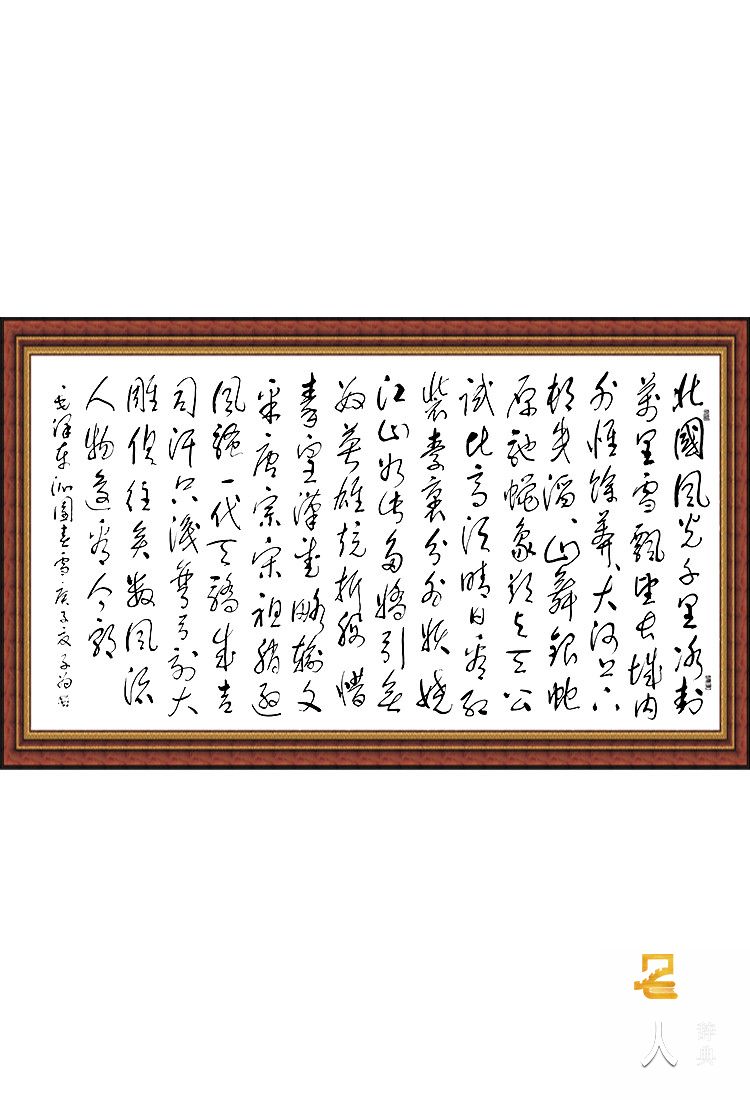 北國風光千里冰封
萬里雪飄望长城内
外惟餘莽、大河上下
頓失滔、山舞銀蛇
原馳蠟象欲与天公
試比高須晴日看紅
裝素裹分外妖嬈
江山如此多嬌引無
数英雄競折腰惜
秦皇漢武略輸文
采唐宗宋祖稍遜
風騷一代天驕成吉
思汗只識彎弓射大
雕俱往矣数風流
人物還看今朝
毛澤東沁園春雪庚子夏子
人
辞典